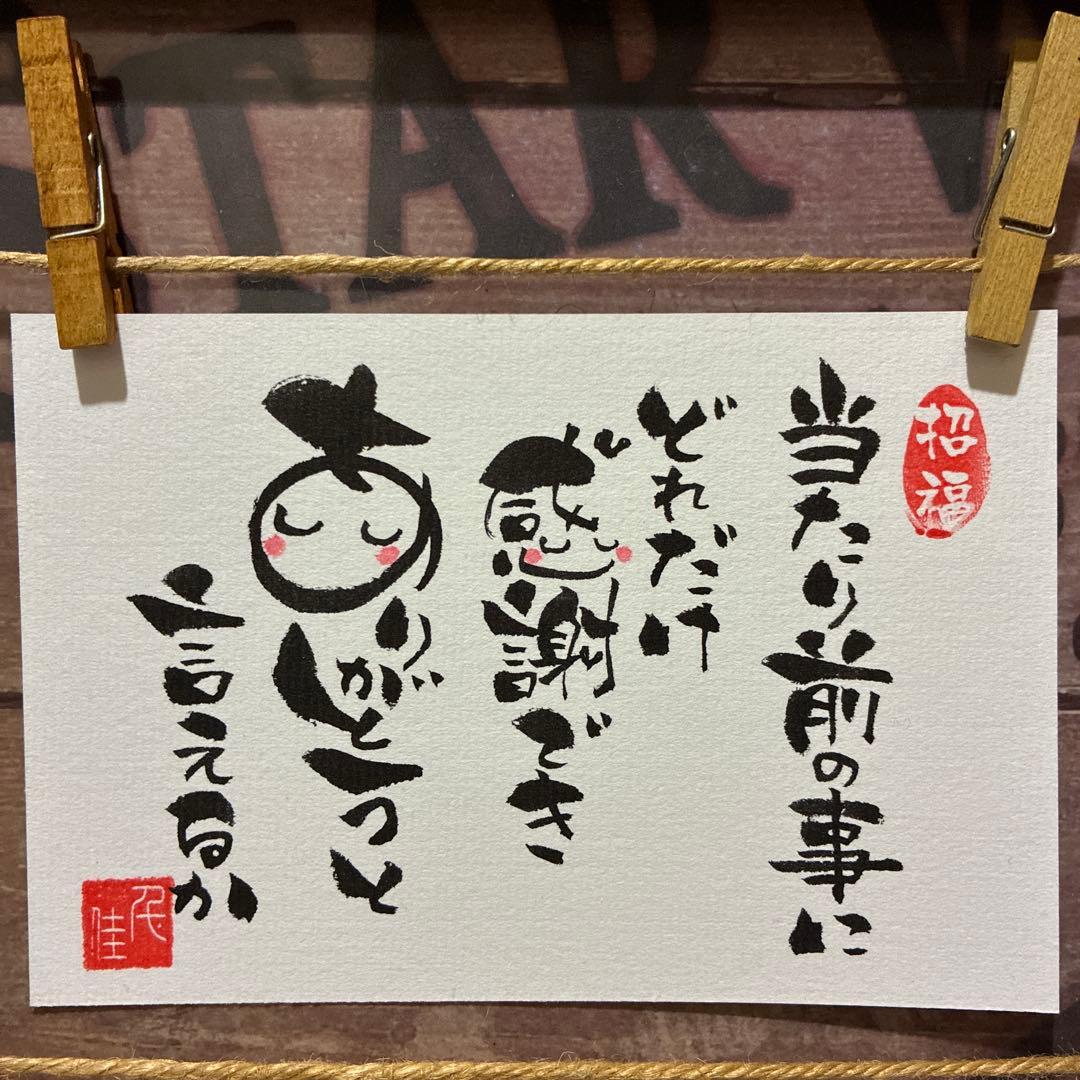 TAR
招福
当たり前の事に
どれだけ
感謝でき
ありがとうと
言えるか